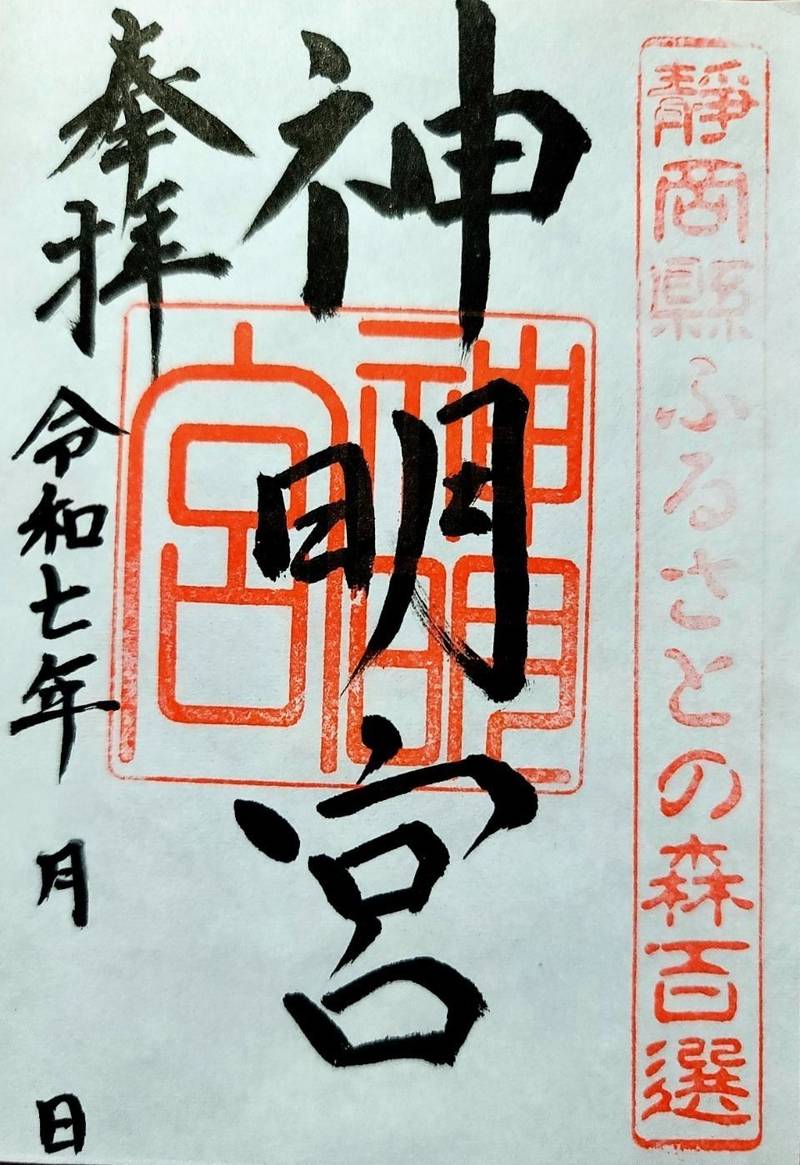 靜岡縣ふるさとの森百選
神明宮
神明
宮
奉拝
令和七年 月 日